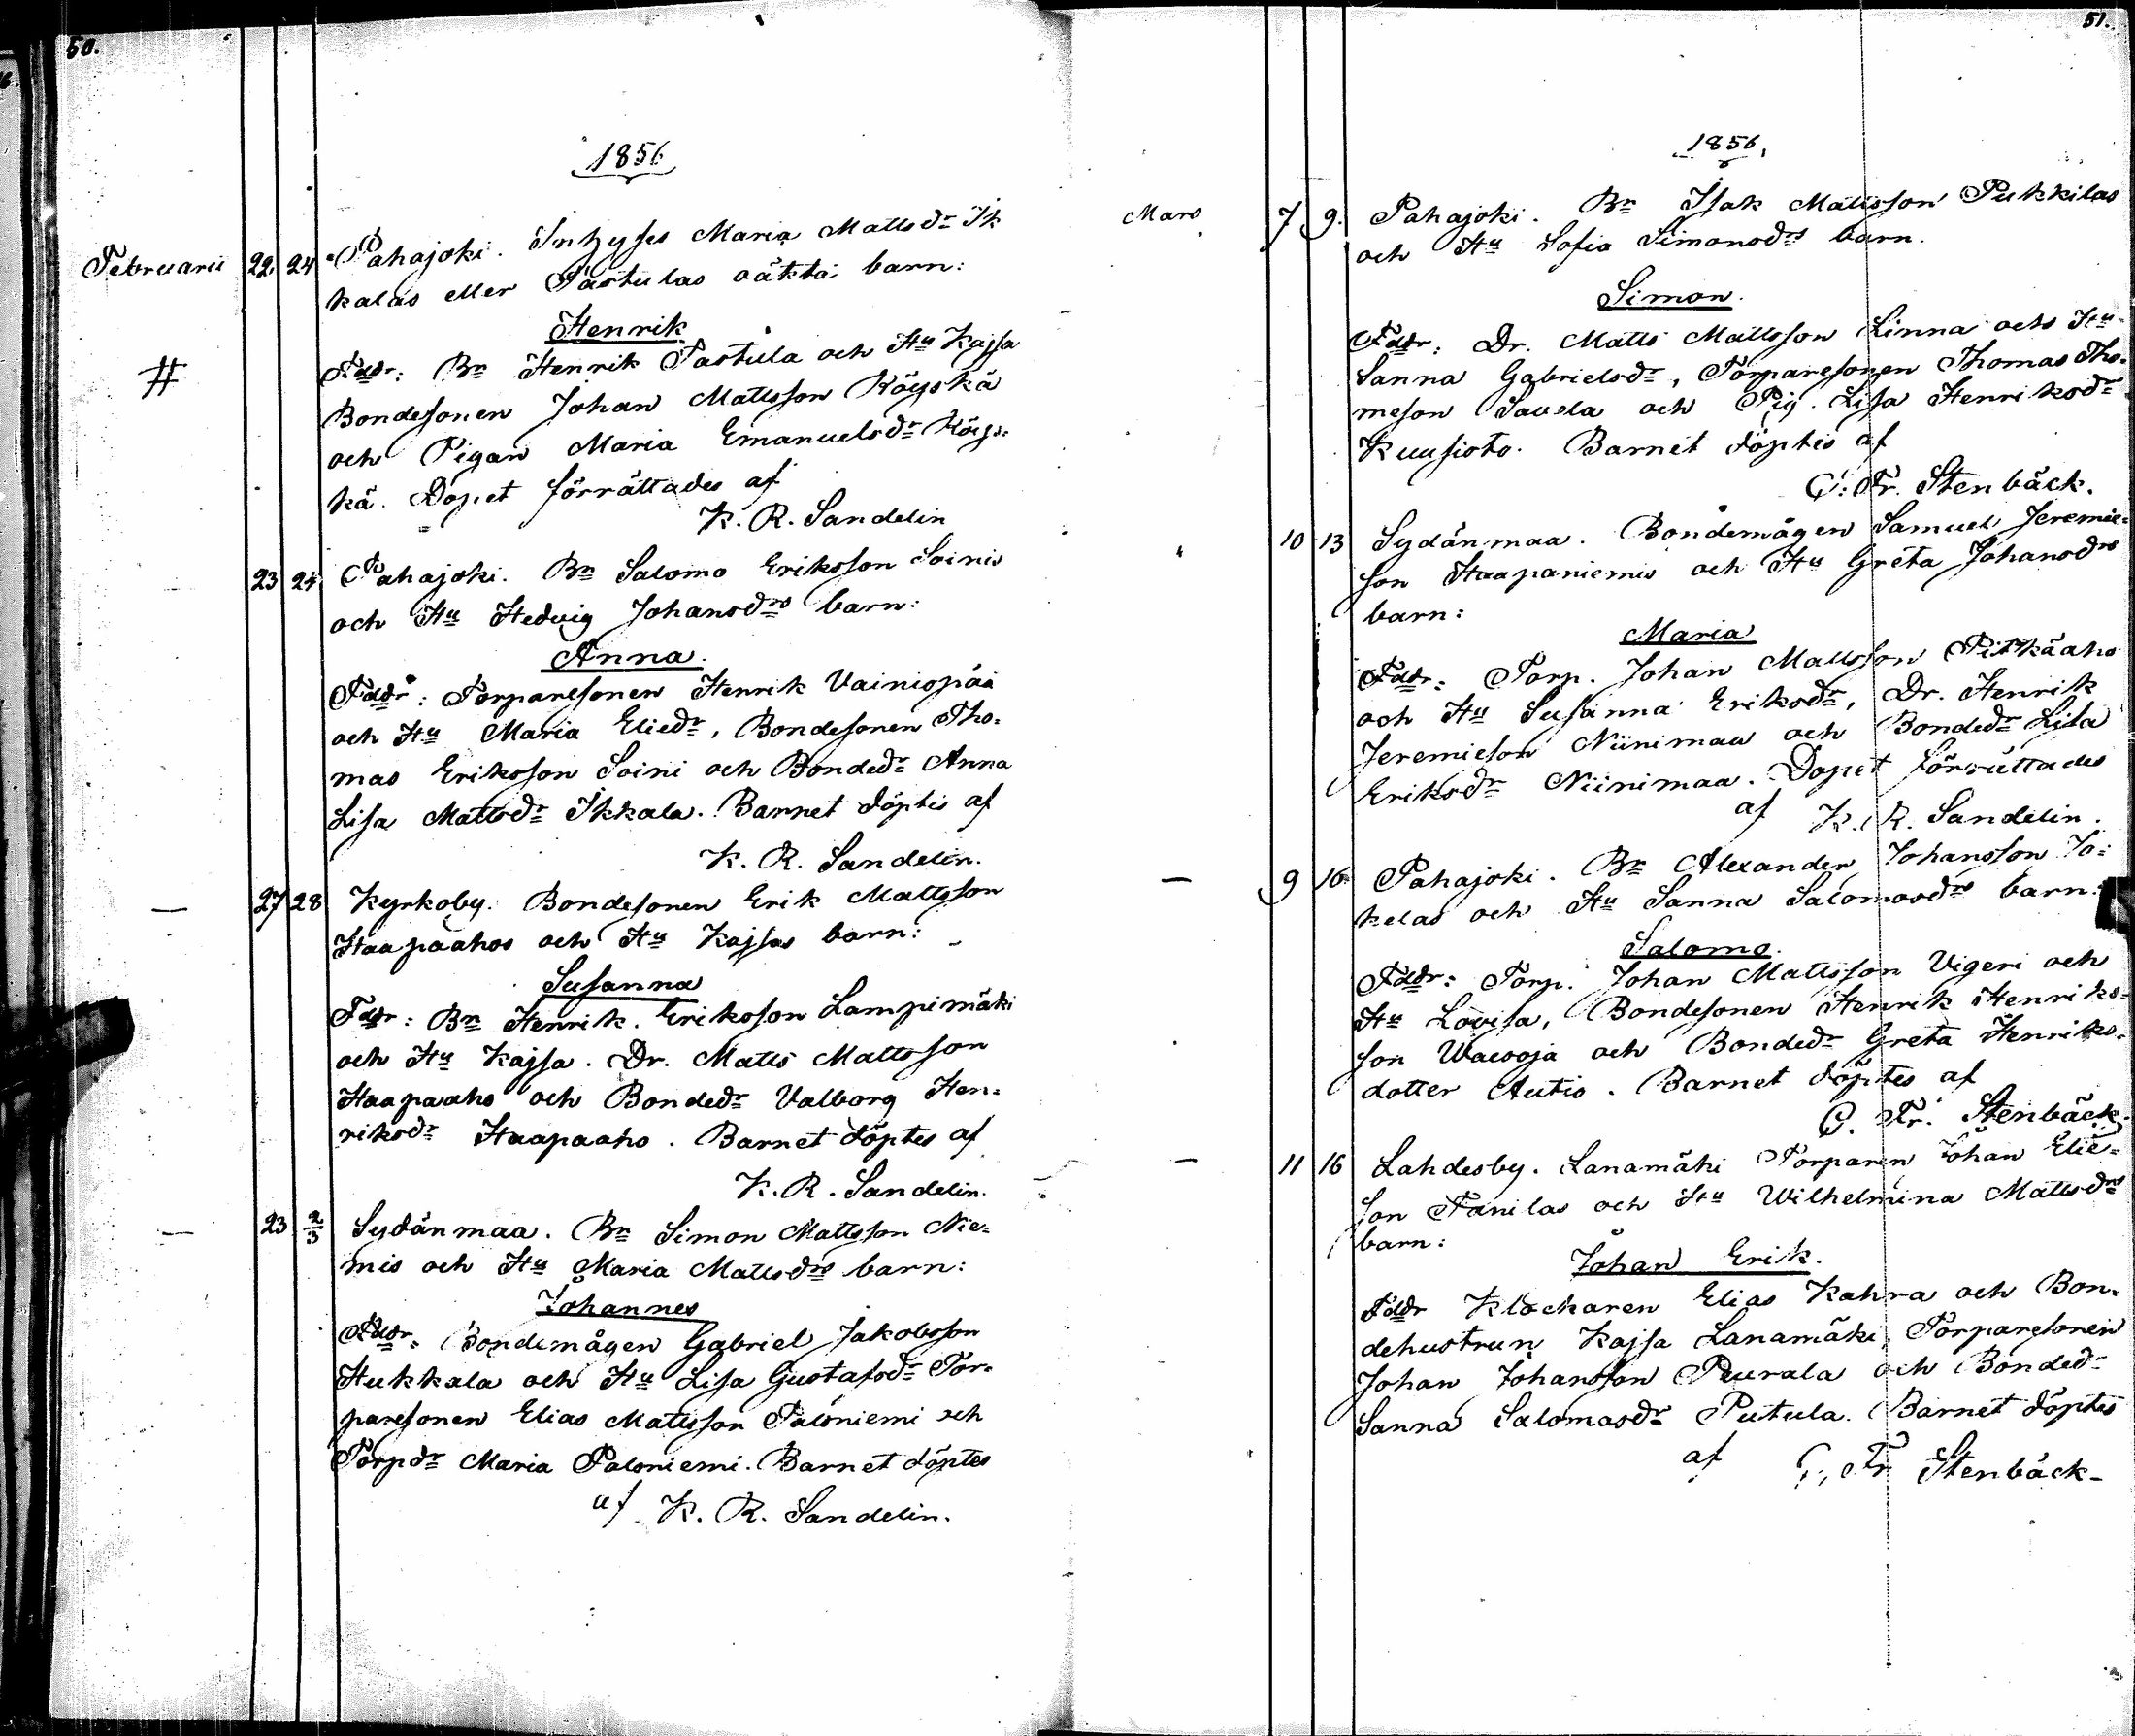 50.
1856
Februarii 22. 24 Pahajoki. Inhyses Maria Mattsdr Ik
kalas eller Pastulas oäkta barn:
Henrik
# Fddr: Bn Henrik Pastula och Hu Kajsa
Bondesonen Johan Mattsson Köyskä
och Pigan Maria Emanuelsdr Köys=
kä. Dopet förrättades af
K. R. Sandelin
23 24 Pahajoki. Bn Salomo Eriksson Soinis
och Hu Hedvig Johansdrs barn:
Anna.
Fddr: Torparesonen Henrik Vainiopää
och Hu Maria Eliedr, Bondesonen Tho=
mas Eriksson Soini och Bondedr Anna
Lisa Mattsdr Ikkala. Barnet döptes af
K. R. Sandelin.
— 27 28 Kyrkoby. Bondesonen Erik Mattsson
Haapaahos och Hu Kajsas barn:
Susanna
Fddr: Bn Henrik Eriksson Lampimäki
och Hu Kajsa. Dr. Matts Mattsson
Haapaaho och Bondedr Valborg Hen=
riksdr Haapaaho. Barnet döptes af
K. R. Sandelin.
— 23 2/3 Sydänmaa. Bn Simon Mattsson Nie=
mis och Hu Maria Mattsdrs barn:
Johannes
Fddr: Bondemågen Gabriel Jakobsson
Hukkala och Hu Lisa Gustafsdr Tor=
paresonen Elias Mattsson Paloniemi och
Torpdr Maria Paloniemi. Barnet döptes
af K. R. Sandelin.
51.
1856.
Mars 7 9. Pahajoki. Bn Isak Mattsson Pukkilas
och Hu Sofia Simonsdrs barn.
Simon.
Fddr: Dr. Matts Mattsson Linna och Hu
Sanna Gabrielsdr, Torparesonen Thomas Tho=
meson Savela och Pig. Lisa Henriksdr
Kuusisto. Barnet döptes af
C. Fr. Stenbäck.
10 13 Sydänmaa. Bondemågen Samuel Jeremie=
son Haapaniemis och Hu Greta Johansdrs
barn:
Maria
Fddr: Torp. Johan Mattsson Pitkäaho
och Hu Susanna Eriksdr, Dr. Henrik
Jeremieson Niinimaa och Bondedr Lisa
Eriksdr Niinimaa. Dopet förrättades
af K. R. Sandelin.
— 9 16. Pahajoki. Bn Alexander Johansson Jo=
kelas och Hu Sanna Salomosdrs barn:
Salomo.
Fddr: Torp. Johan Mattsson Vigeri och
Hu Lovisa, Bondesonen Henrik Henriks=
son Waeoja och Bondedr Greta Henriks=
dotter Autio. Barnet döptes af
C. Fr. Stenbäck.
— 11 16 Lahdesby. Lanamäki Torparen Johan Elie=
son Fanilas och Hu Wilhelmina Mattsdrs
barn:
Johan Erik.
Fddr Klockaren Elias Kahra och Bon=
dehustrun Kajsa Lanamäki, Torparesonen
Johan Johansson Peurala och Bondedr
Sanna Salomosdr Putula. Barnet döptes
af C. Fr Stenbäck-